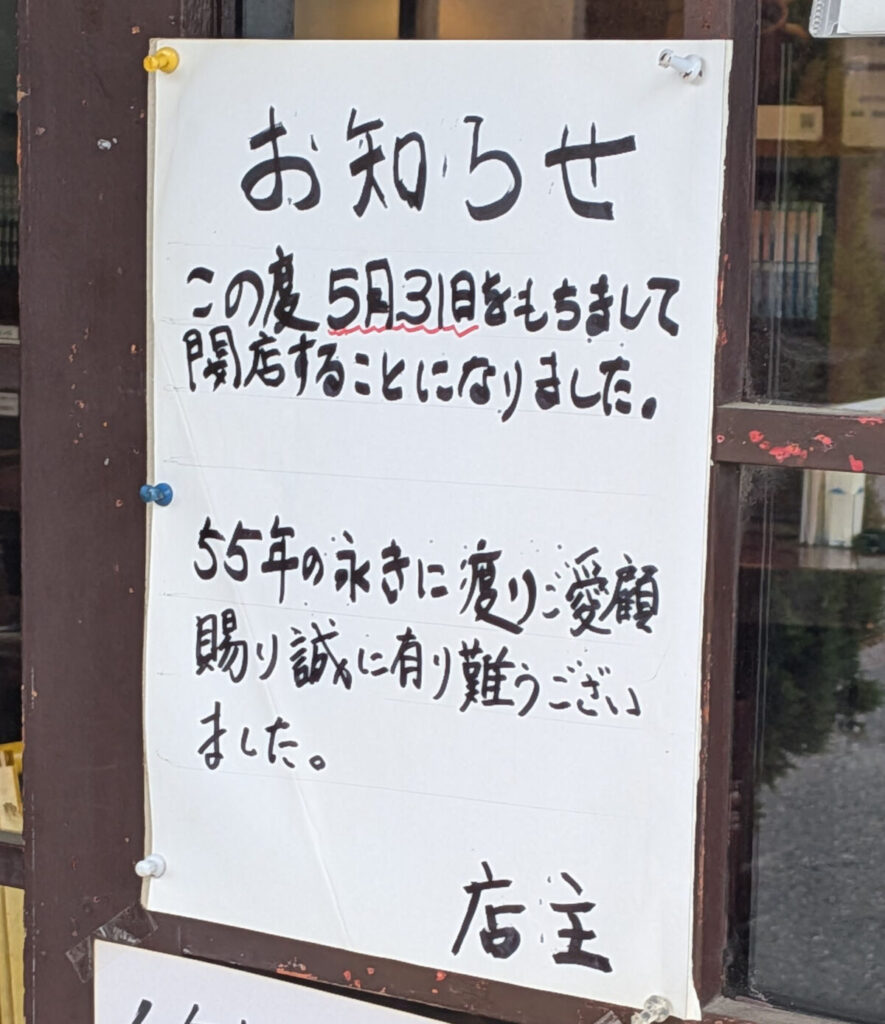 お知らせ
この度5月31日をもちまして
閉店することになりました。
55年の永きに渡りご愛顧
賜り誠に有り難うござい
ました。
店主